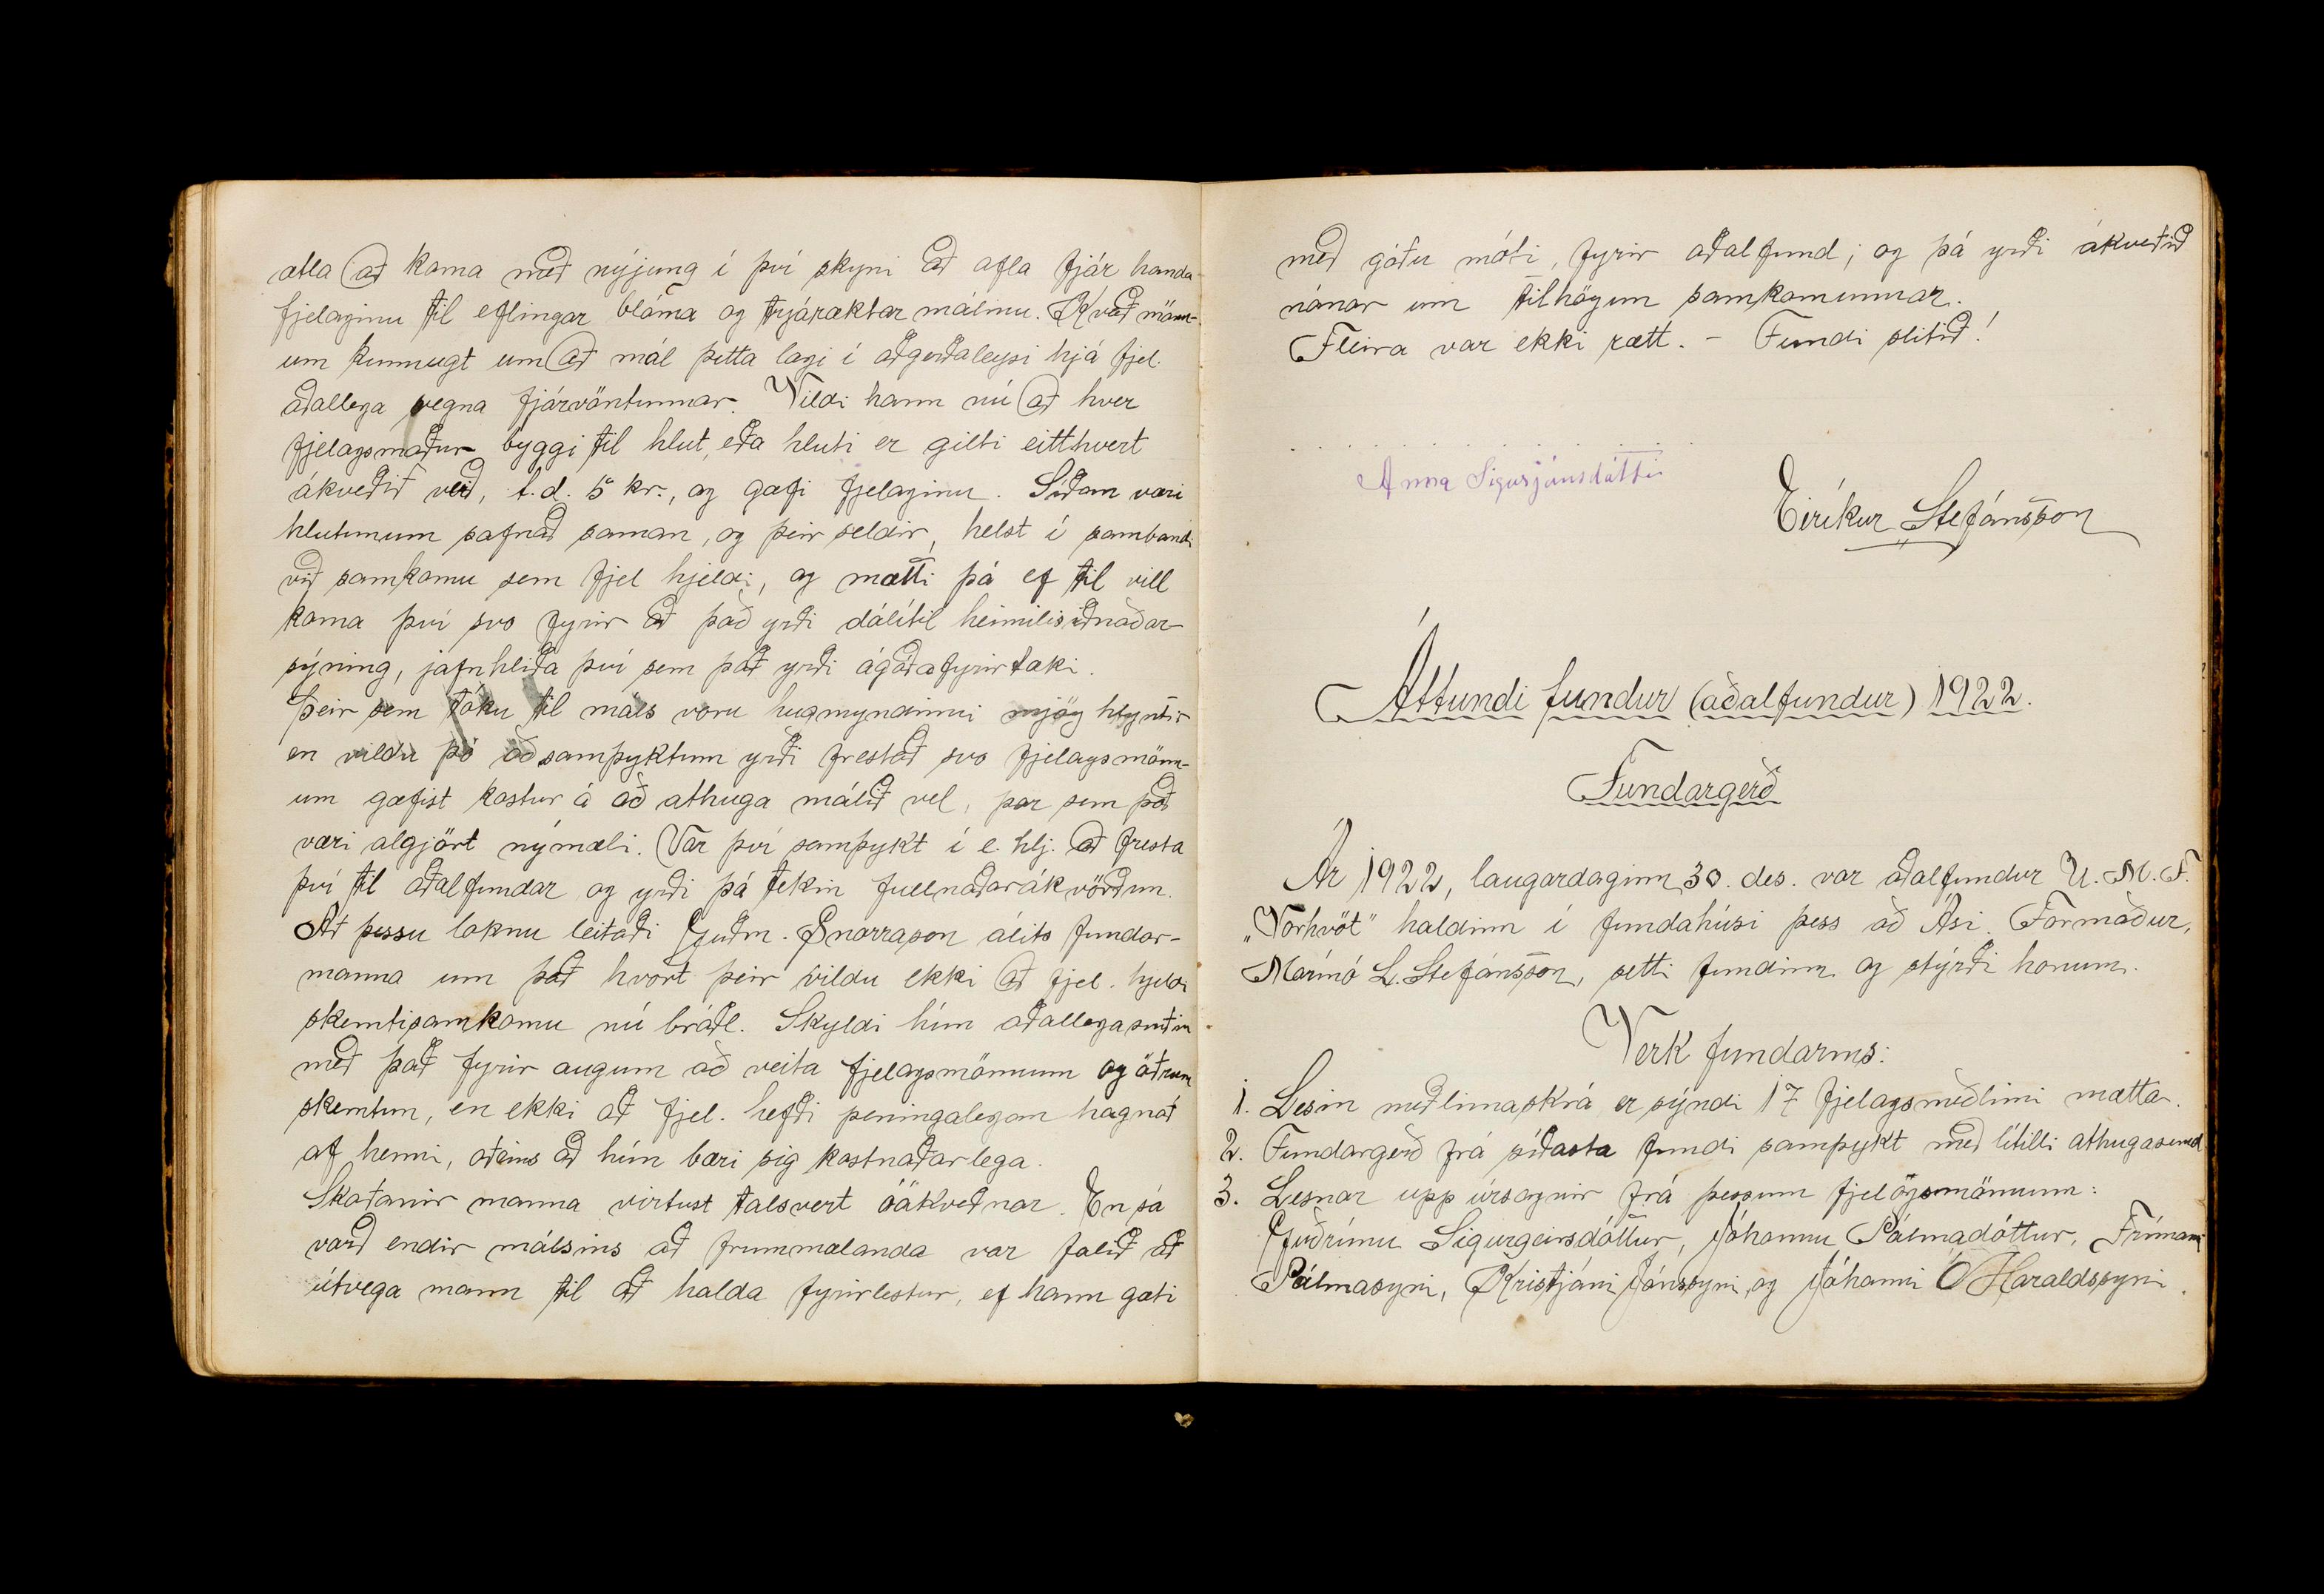 ætla að koma með nýjung í því skyni að afla fjár handa
fjelaginu til eflingar blóma og trjáræktarmálinu. Kvað mönn-
um kunnugt um að mál þetta lægi í aðgerðaleysi hjá fjel.
aðallega vegna fjárvöntunnar. Vildi hann nú að hver
fjelagsmaður byggi til hlut, eða hluti er gilti eitthvert
ákveðið verð, t.d. 5 kr., og gæfi fjelaginu. Síðan væri
hlutunum safnað saman, og þeir seldir, helst í sambandi
við samkomu sem fjel hjeldi, og mætti þá ef til vill
koma því svo fyrir að það yrði dálítil heimilisiðnaðar-
sýning, jafnhliða því sem það yrði ágóðafyrirtæki.
Þeir sem tóku til máls voru hugmyndinni mjög hlyntir
en vildu þó að samþyktum yrði frestað svo fjelagsmönn-
um gæfist kostur á að athuga málið vel, þar sem það
væri algjört nýmæli. Var því samþykt í e. hlj. að fresta
því til aðalfundar og yrði þá tekin fullnaðarákvörðun.
Að þessu loknu leitaði Guðm. Snorrason álits fundar-
manna um það hvort þeir vildu ekki að fjel. hjeldi
skemtisamkomu nú bráðl. Skyldi hún aðallega sniðin
með það fyrir augum að veita fjelagsmönnum og öðrum
skemtun, en ekki að fjel. hefði peningalegan hagnað
af henni, aðeins að hún bæri sig kostnaðarlega.
Skoðanir manna virtust talsvert óákveðnar. En sá
varð endir málsins að frummælanda var falið að
útvega mann til að halda fyrirlestur, ef hann gæti
með góðu móti, fyrir aðalfund; og þá yrði ákveðið
nánar um tilhögun samkomunnar.
Fleira var ekki rætt. - Fundi slitið!
Anna Sigurjónsdóttir
Eiríkur Stefánsson
Áttundi fundur (aðalfundur) 1922.
Fundargerð
Ár 1922, laugardaginn 30. des. var aðalfundur U. M. F.
„Vorhvöt" haldinn í fundahúsi þess að Ási. Formaður,
Marinó L. Stefánsson, setti fundinn og stýrði honum.
Verk fundarins:
1. Lesin meðlimaskrá er sýndi 17 fjelagsmeðlimi mætta.
2. Fundargerð frá síðasta fundi samþykt með lítilli athugasemd
3. Lesnar upp úrsagnir frá þessum fjelögsmönnum:
Guðrúnu Sigurgeirsdóttur, Jóhönnu Pálmadóttur, Frímanni
Pálmasyni, Kristjáni Jónssyni og Jóhanni Ó Haraldssyni.